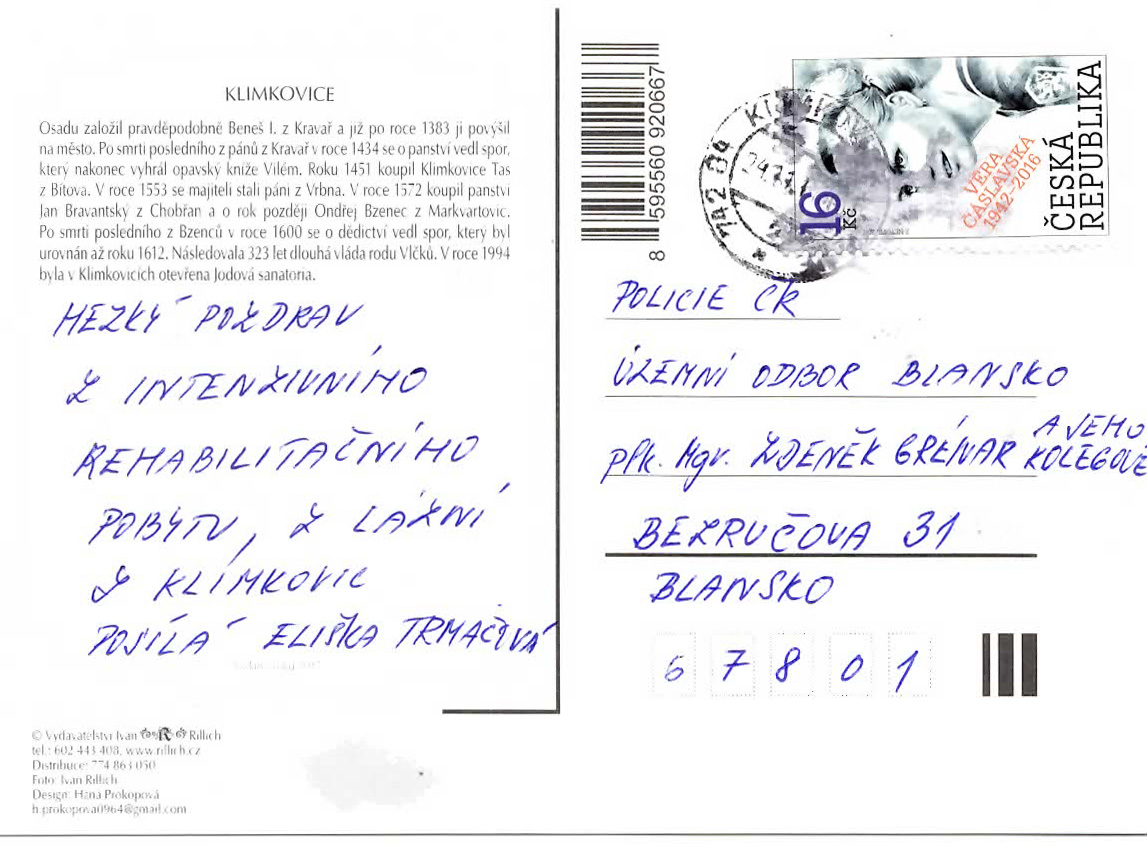 KLIMKOVICE
Osadu založil pravděpodobně Beneš I. z Kravař a již po roce 1383 ji povýšil
na město. Po smrti posledního z pánů z Kravař v roce 1434 se o panství vedl spor,
který nakonec vyhrál opavský kníže Vilém. Roku 1451 koupil Klimkovice Tas
z Bítova. V roce 1553 se majiteli stali páni z Vrbna. V roce 1572 koupil panství
Jan Bravantský z Chobřan a o rok později Ondřej Bzenec z Markvartovic.
Po smrti posledního z Bzenců v roce 1600 se o dědictví vedl spor, který byl
urovnán až roku 1612. Následovala 323 let dlouhá vláda rodu Vlčků. V roce 1994
byla v Klimkovicích otevřena Jodová sanatoria.
HEZKÝ POZDRAV
Z INTENZIVNÍHO
REHABILITAČNÍHO
POBYTU, Z LÁZNÍ
Z KLIMKOVIC
POSÍLÁ ELIŠKA TRMAČOVÁ
© Vydavatelství Ivan R Rillich
tel.: 602 443 408, www.rillich.cz
Distribuce: 774 863 050
Foto: Ivan Rillich
Design: Hana Prokopová
h.prokopova0964@gmail.com
8 595560 920667
742 04
ČESKÁ
REPUBLIKA
VĚRA
ČÁSLAVSKÁ
1942-2016
16
Kč
POLICIE ČR
ÚZEMNÍ ODBOR BLANSKO
pplk. Mgr. ZDENĚK GRÉNAR A JEHO
KOLEGOVÉ
BEZRUČOVA 31
BLANSKO
6 7 8 0 1